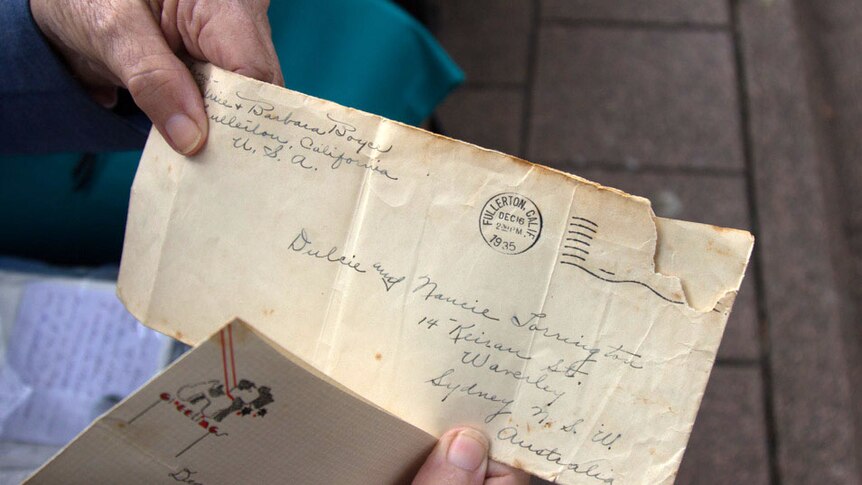 & Barbara Boyce
Fullerton, California
U. S. A.
FULLERTON, CALIF.
DEC 16
2 PM
1935
Dulcie and Nancie Torrington
14 Keiran St.
Waverley
Sydney N. S. W.
Australia
GREETINGS